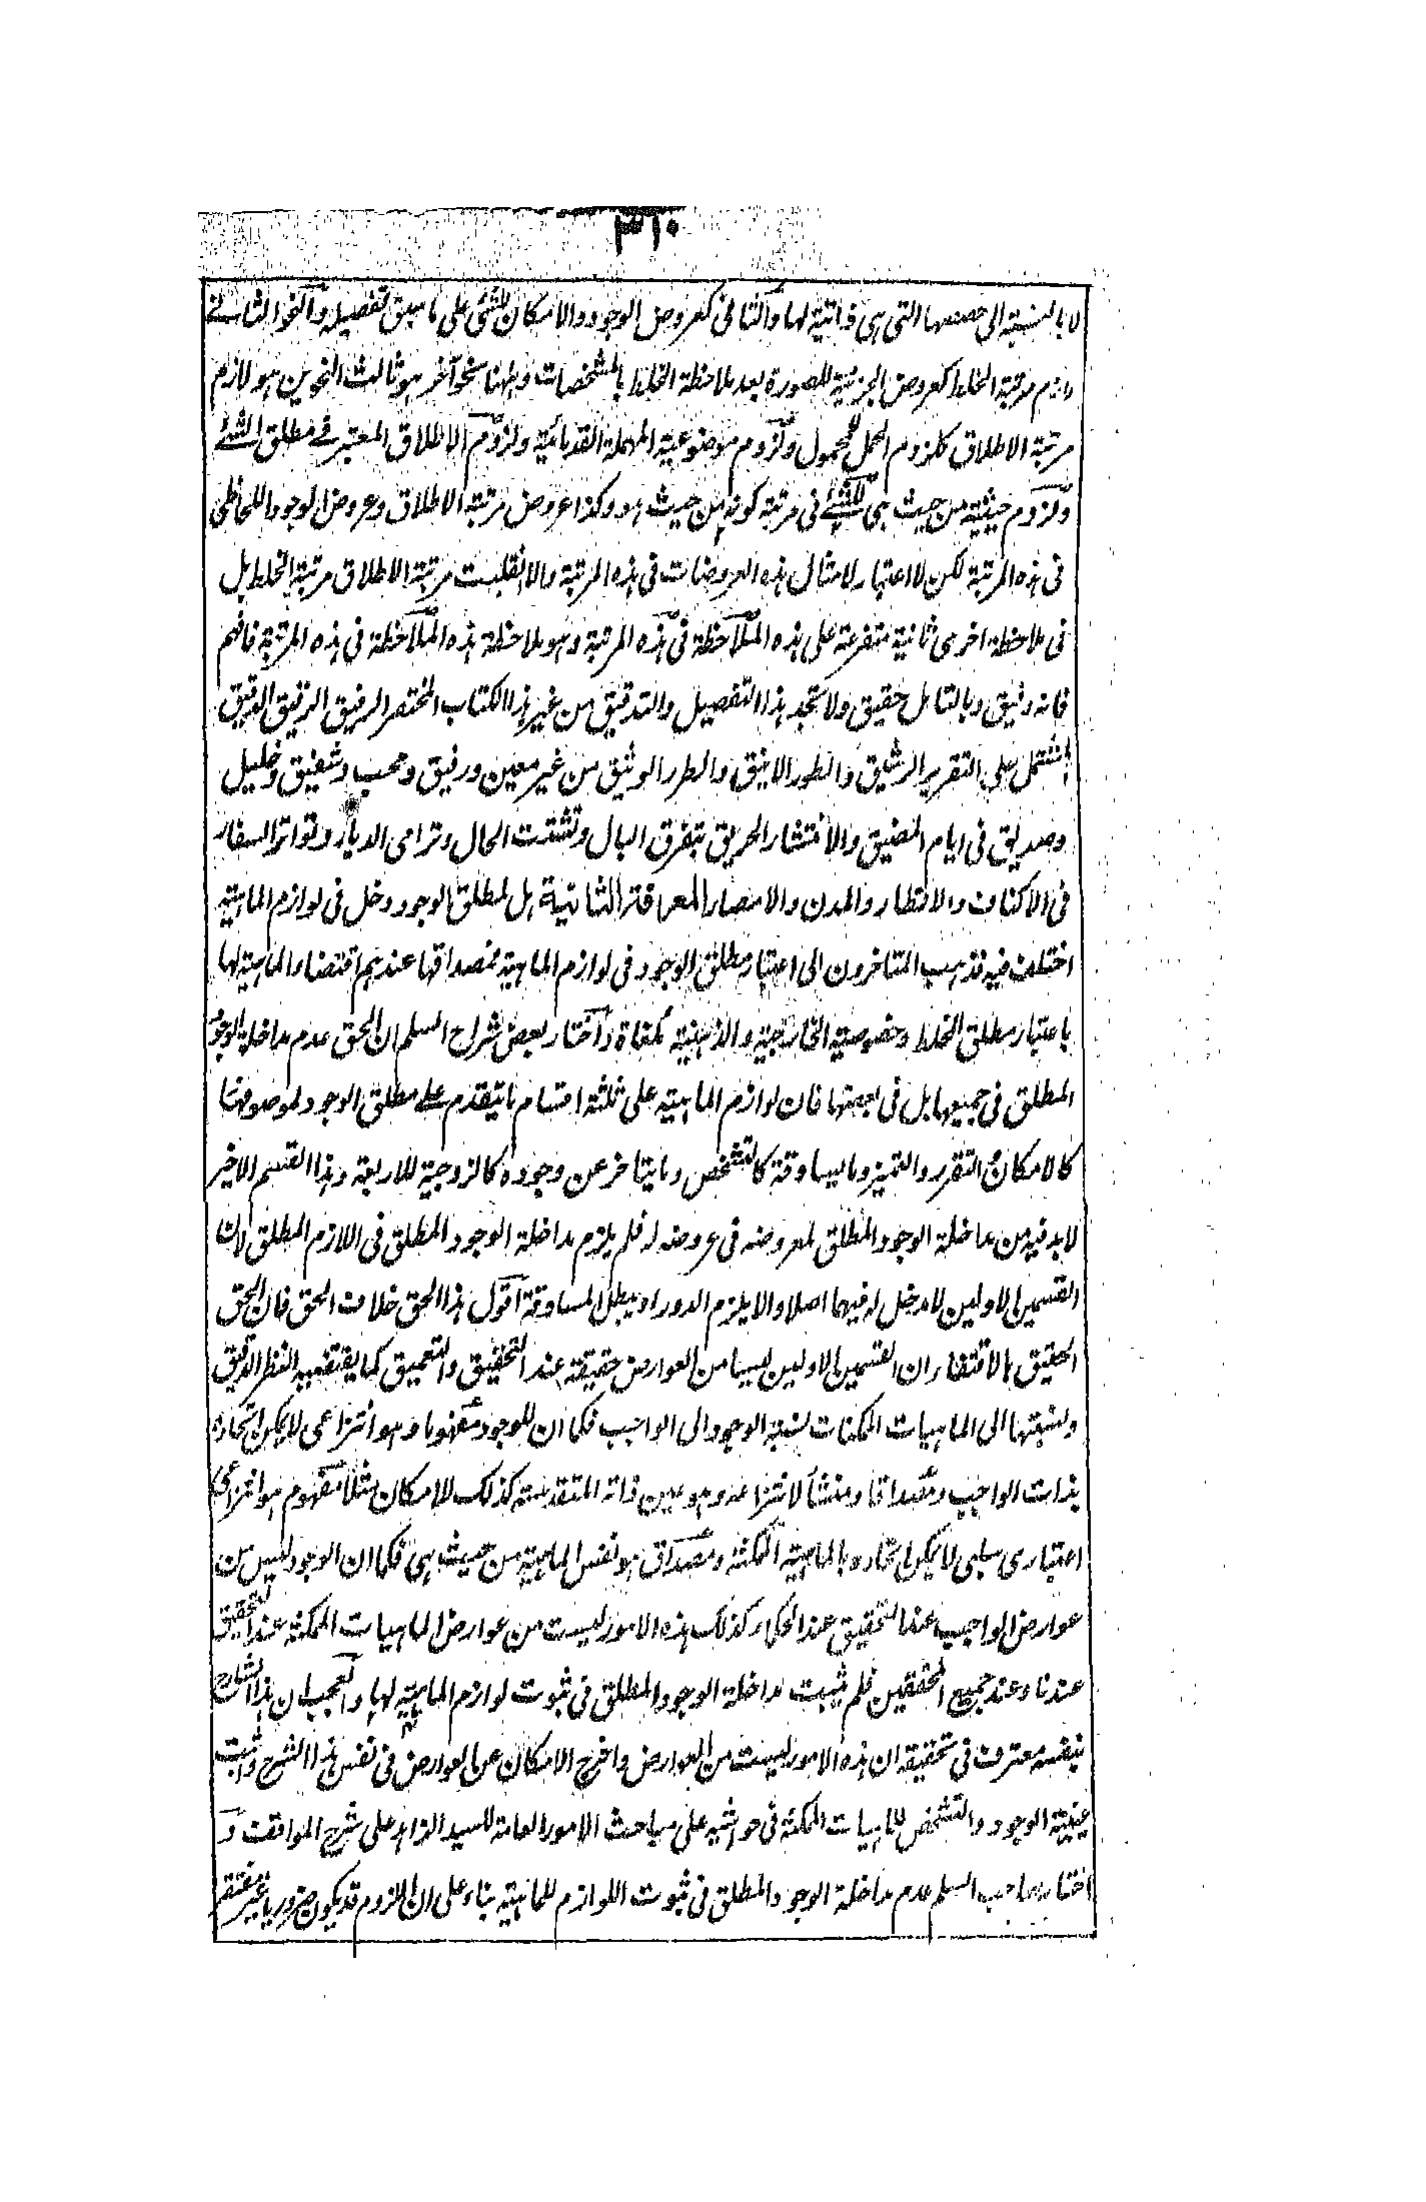 ٣١٠
لا بالنسبة الى حصصها التى هى ذاتية لها والثانى كعروض الوجود والامكان للشئ على ما سبق تفصيله والنحو الثانى
لازم مرتبة الخلط كعروض الجزئية للصورة بعد ملاحظة الخلط بالمشخصات وههنا نحو آخر هو ثالث النحوين هو لازم
مرتبة الاطلاق كلزوم الحمل للمحمول ولزوم موضوعية المهملة القدمائية ولزوم الاطلاق المعتبر في مطلق الشئ
ولزوم حيثية من حيث هى للشئ فى مرتبة كونه من حيث هو وكذا عروض مرتبة الاطلاق وعروض الوجود اللحاظى
فى هذه المرتبة لكن لا اعتبار لامثال هذه العروضات فى هذه المرتبة والا انقلبت مرتبة الاطلاق مرتبة الخلط بل
فى ملاحظة اخرى ثانية متفرعة على هذه الملاحظة فى هذه المرتبة وهو ملاحظة هذه الملاحظة فى هذه المرتبة فافهم
فانه دقيق وبالتامل حقيق ولا تجد هذا التفصيل والتدقيق من غير هذا الكتاب المختصر الرفيق الرقيق العريق
المشتمل على التقرير الرشيق والطور الانيق والطرز الوثيق من غير معين ورفيق ومحب وشفيق وخليل
وصديق فى ايام المضيق والانتشار الحريق بتفرق البال وتشتت الحال وترامى الديار وتواتر السفار
فى الاكناف والاقطار والمدن والامصار المعرفة الثانية هل لمطلق الوجود دخل فى لوازم الماهية
اختلف فيه فذهب المتاخرون الى اعتبار مطلق الوجود فى لوازم الماهية فمصداقها عندهم اقتضاء الماهية لها
باعتبار مطلق الخلط وخصوصية الخارجية والذهنية ملغاة واختار بعض شراح السلم ان الحق عدم مداخلة الوجود
المطلق فى جميعها بل فى بعضها فان لوازم الماهية على ثلثة اقسام ما يتقدم على مطلق الوجود لموصوفها
كالامكان والتقرر والتميز وما يساوقه كالتشخص وما يتاخر عن وجوده كالزوجية للاربعة وهذا القسم الاخير
لا بد فيه من مداخلة الوجود المطلق لمعروضه فى عروضه له فلم يلزم مداخلة الوجود المطلق فى اللازم المطلق لان
القسمين الاولين لا دخل له فيهما اصلا والا يلزم الدور او يبطل المساوقة اقول هذا الحق خلاف الحق فان الحق
الحقيق بالاقتفاء ان القسمين الاولين ليسا من العوارض حقيقة عند التحقيق والتعميق كما يقتضيه النظر الدقيق
ونسبتها الى الماهيات الممكنات نسبة الوجود الى الواجب فكما ان للوجود مفهوما وهو انتزاعى لا يمكن اتحاده
بذات الواجب ومصداقا ومنشأ لانتزاعه وهو عين ذاته المتقدسة كذلك للامكان مثلا مفهوم هو انتزاعى
اعتبارى سلبى لا يمكن اتحاده بالماهية الممكنة ومصداق هو نفس الماهية من حيث هى فكما ان الوجود ليس من
عوارض الواجب عند التحقيق عند الحكماء كذلك هذه الامور ليست من عوارض الماهيات الممكنة عند التحقيق
عندنا وعند جميع المحققين فلم يثبت مداخلة الوجود المطلق فى ثبوت لوازم الماهية لها والعجب ان هذا الشارح
بنفسه معترف فى تحقيقه ان هذه الامور ليست من العوارض واخرج الامكان عن العوارض فى نفس هذا الشرح واثبت
عينية الوجود والتشخص للماهيات الممكنة فى حواشيه على مباحث الامور العامة للسيد الزاهد على شرح المواقف و
اختار صاحب السلم عدم مداخلة الوجود المطلق فى ثبوت اللوازم للماهية بناء على ان اللزوم قد يكون ضروريا غير مفتقر